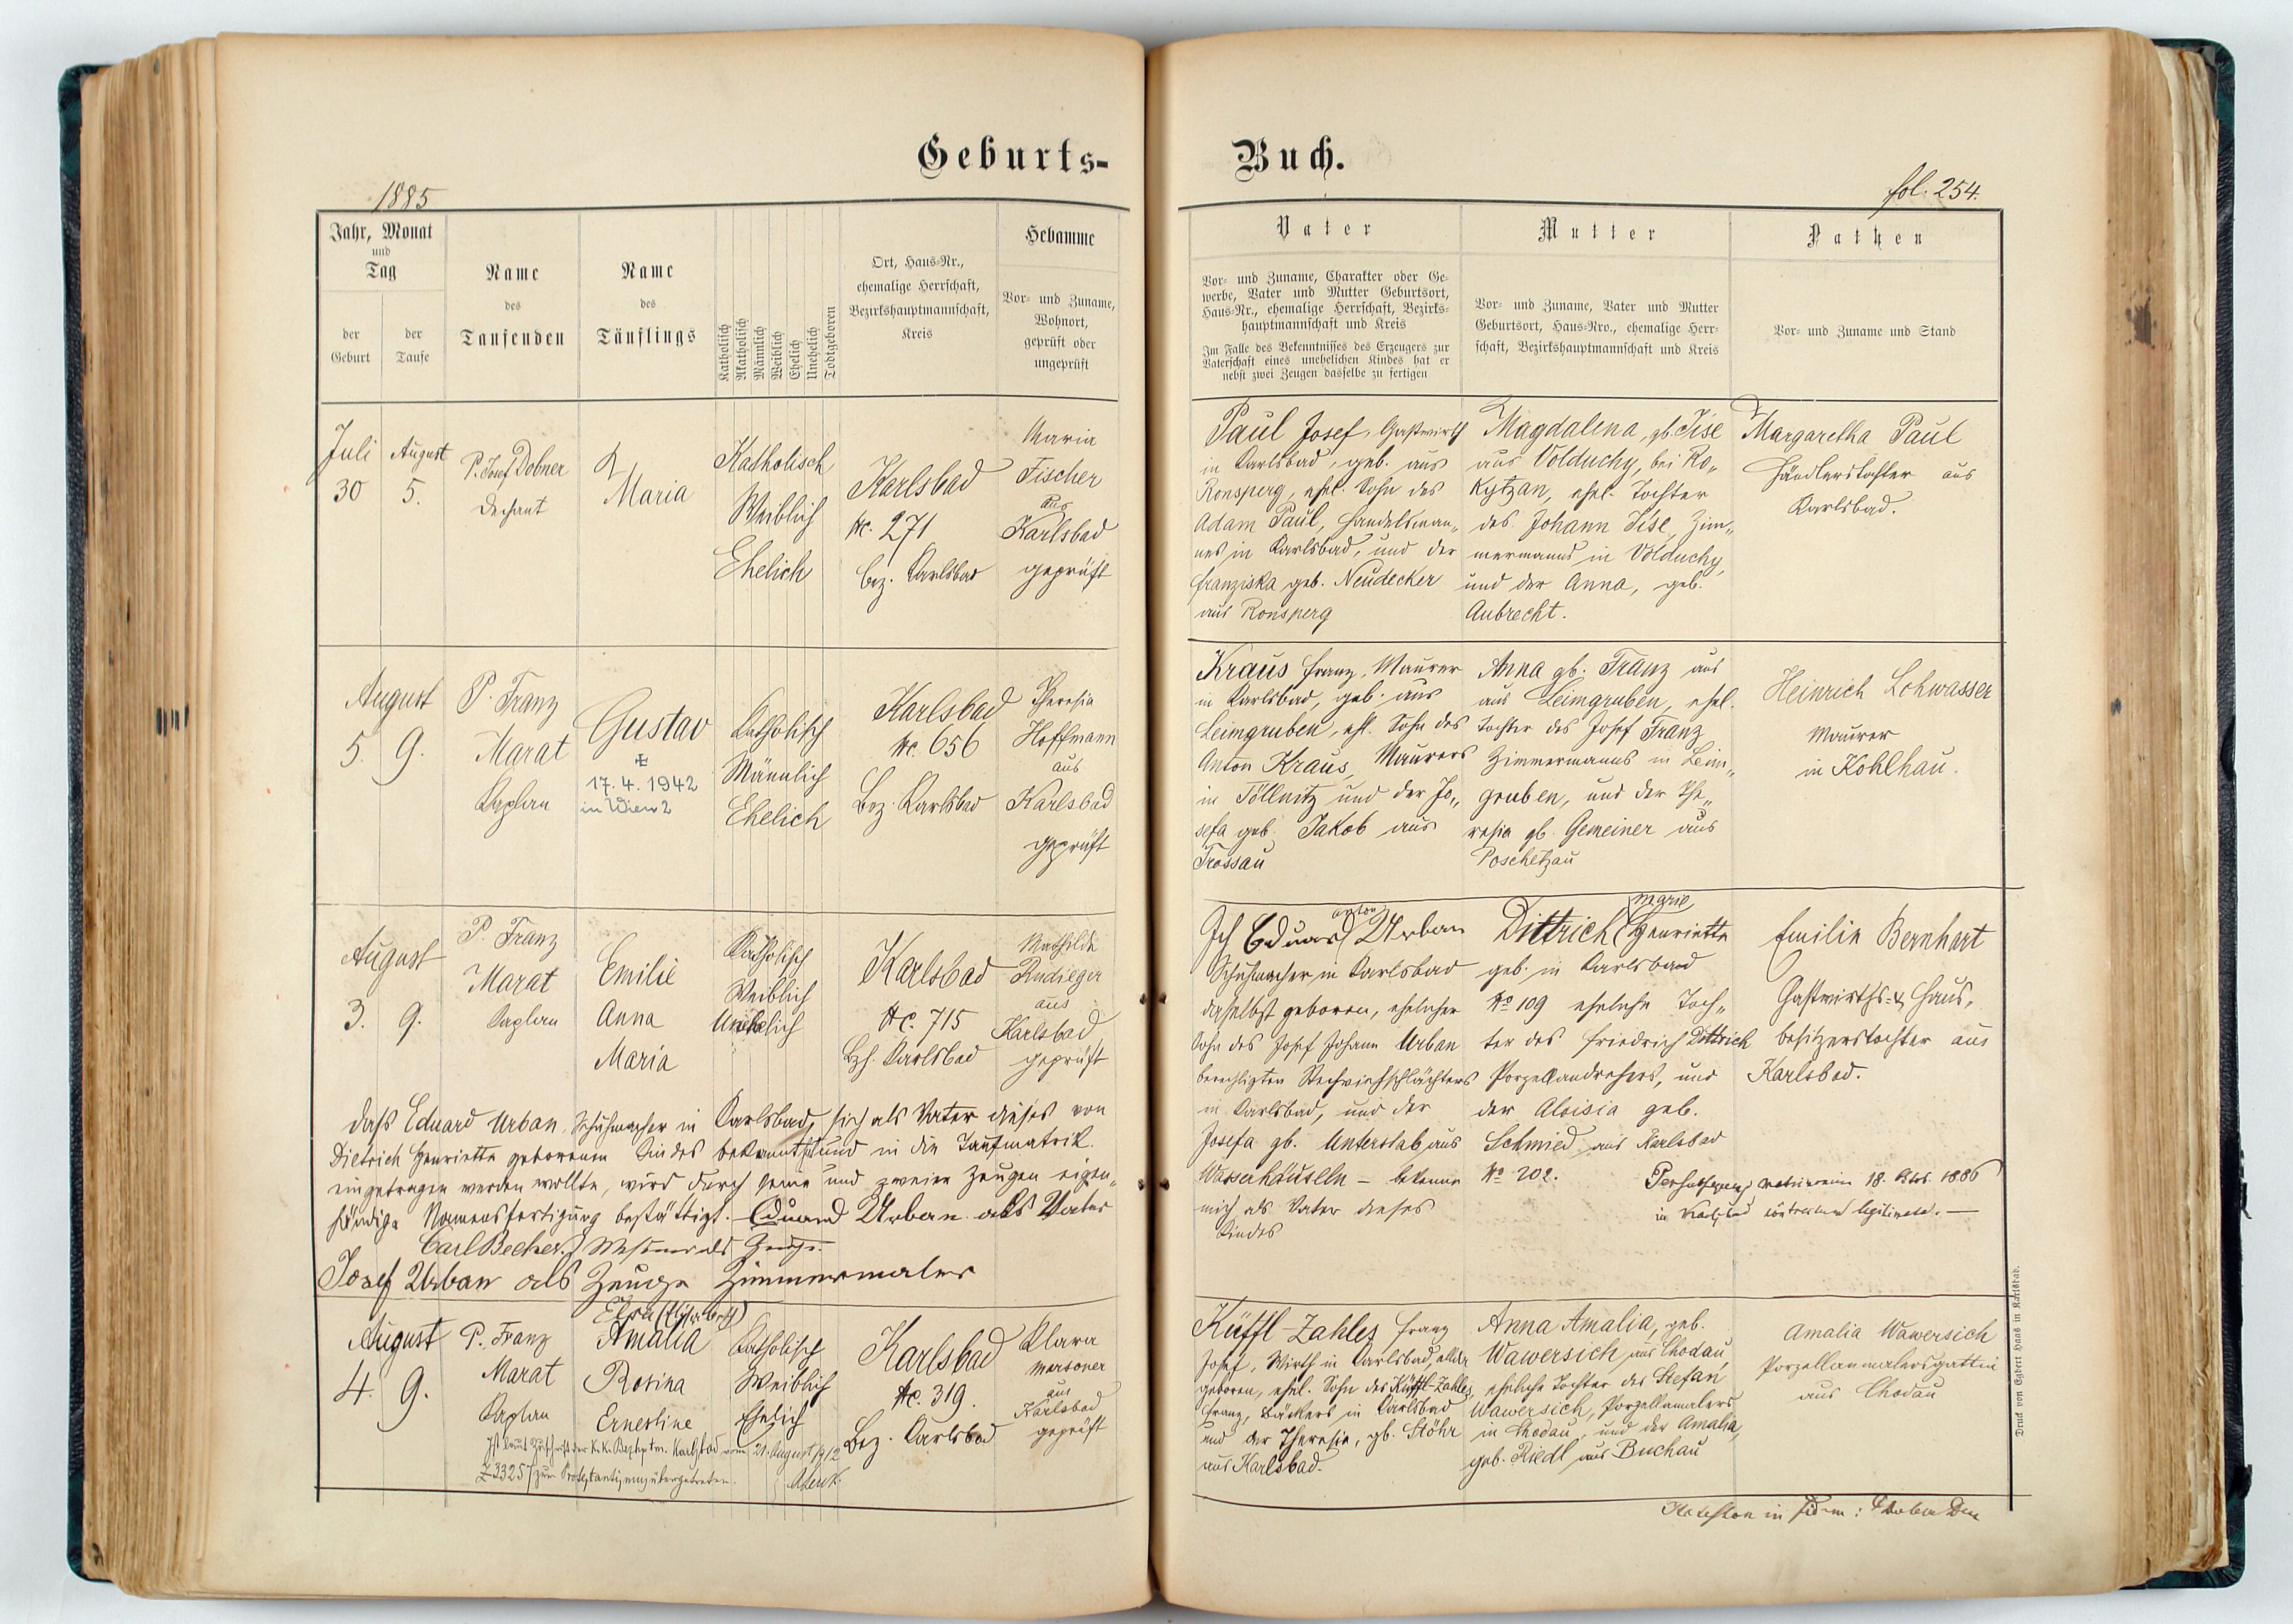 Geburts-
Buch.
1885
fol. 254.
Jahr, Monat
und
Tag
der
Geburt
der
Taufe
Name
des
Taufenden
Name
des
Täuflings
Katholisch
Akatholisch
Männlich
Weiblich
Ehelich
Unehelich
Todtgeboren
Ort, Haus-Nr.,
ehemalige Herrschaft,
Bezirkshauptmannschaft,
Kreis
Hebamme
Vor- und Zuname,
Wohnort,
geprüft oder
ungeprüft
Vater
Vor- und Zuname, Charakter oder Ge-
werbe, Vater und Mutter Geburtsort,
Haus-Nr., ehemalige Herrschaft, Bezirks-
hauptmannschaft und Kreis
Im Falle des Bekenntnisses des Erzeugers zur
Vaterschaft eines unehelichen Kindes hat er
nebst zwei Zeugen dasselbe zu fertigen
Mutter
Vor- und Zuname, Vater und Mutter
Geburtsort, Haus-Nro., ehemalige Herr-
schaft, Bezirkshauptmannschaft und Kreis
Pathen
Vor- und Zuname und Stand
Juli
30
August
5.
P. Josef Dobner
Dechant
Maria
Katholisch
Weiblich
Ehelich
Karlsbad
Nc. 271
bez. Karlsbad
Maria
Fischer
aus
Karlsbad
geprüft
Paul Josef, Gastwirth
in Karlsbad, geb. aus
Ronsperg, ehel. Sohn des
Adam Paul, Handelsman„
nes in Karlsbad, und der
Franziska geb. Neudecker
aus Ronsperg
Magdalena, gb. Jise
aus Volduchy, bei Ro„
kytzan, ehel. Tochter
des Johann Jise, Zim„
mermanns in Volduchy,
und der Anna, geb.
Aubrecht.
Margaretha Paul
Händlerstochter aus
Karlsbad.
August
5. 9.
P. Franz
Marat
Kaplan
Gustav
17. 4. 1942
in Wien 2
Katholisch
Männlich
Ehelich
Karlsbad
Nc. 656
Bez. Karlsbad
Theresia
Hoffmann
aus
Karlsbad
geprüft
Kraus Franz, Maurer
in Karlsbad, geb. aus
Leimgruben, ehl. Sohn des
Anton Kraus, Maurers
in Töllnitz und der Jo„
sefa geb. Jakob aus
Trossau
Anna gb. Franz aus
aus Leimgruben, ehel.
Tochter des Josef Franz
Zimmermanns in Leim„
gruben, und der The„
resia gb. Gemeiner aus
Poschetzau
Heinrich Lohwasser
Maurer
in Kohlhau.
August
3. 9.
P. Franz
Marat
Kaplan
Emilie
Anna
Maria
Katholisch
Weiblich
Unehelich
Karlsbad
Nc. 715
Bzh. Karlsbad
Mathilde
Rudieger
aus
Karlsbad
geprüft
Ich Eduard Anton Urban
Schuhmacher in Karlsbad
daselbst geboren, ehelicher
Sohn des Josef Johann Urban
berechtigten Stechviehschlächters
in Karlsbad, und der
Josefa gb. Unterstab aus
Wasserhäuseln – bekenne
mich als Vater dieses
Kindes
Marie
Dittrich Henriette
geb. in Karlsbad
No 109 eheliche Toch„
ter des Friedrich Dittrich
Porzellandrehers, und
der Aloisia geb.
Schmied aus Karlsbad
No 202.
Emilie Bernhart
Gastwirths- & Haus„
besitzerstochter aus
Karlsbad.
in Karlsbad legitimata. —
Dass Eduard Urban, Schuhmacher in Karlsbad, sich als Vater dieses von
Dietrich Henriette geborenen Kindes bekannt und in die Taufmatrik
eingetragen werden wollte, wird durch seine und zweier Zeugen eigen„
händige Namensfertigung bestättigt. Eduard Urban als Vater
Carl Becher, Messner als Zeuge.
Josef Urban als Zeuge Zimmermaler
August
4. 9.
P. Franz
Marat
Kaplan
Elsa (Elisabeth)
Amalia
Rosina
Ernestine
Katholisch
Weiblich
Ehelich
Karlsbad
Nc. 319.
Bez. Karlsbad
Klara
aus
Karlsbad
geprüft
Ist laut Zuschrift der k. k. Bezhptm. Karlsbad vom 21. August 1912
Z 33257 zum Protestantismus übergetreten.
Küffl-Zahles Franz
Josef, Wirth in Karlsbad, allda
geboren, ehel. Sohn des Küffl-Zahles
Franz, Bäckers in Karlsbad
und der Theresia, gb. Stöhr
aus Karlsbad.
Anna Amalia, geb.
Wawersich aus Chodau,
eheliche Tochter des Stefan
Wawersich, Porzellanmalers
in Chodau, und der Amalia,
geb. Riedl aus Buchau
Amalia Wawersich
Porzellanmalersgattin
aus Chodau
Druck von Egbert Haas in Karlsbad.